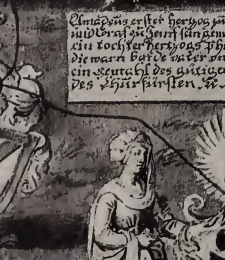 Amadeus erster hertzog zu
und Graf zu Jenff sein gem
ein tochter hertzogs Phi
die warn bede vater vn
ein Eeutahl des gutigen
des Churfürsten